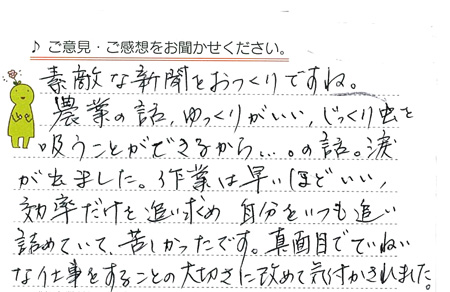 ♪ ご意見・ご感想をお聞かせください。
素敵な新聞をおつくりですね。
農業の話，ゆっくりがいい，じっくり虫を
吸うことができるから…。の話。涙
が出ました。作業は早いほどいい，
効率だけを追い求め 自分をいつも追い
詰めていて、苦しかったです。真面目でていねい
な仕事をすることの大切さに改めて気付かされました。